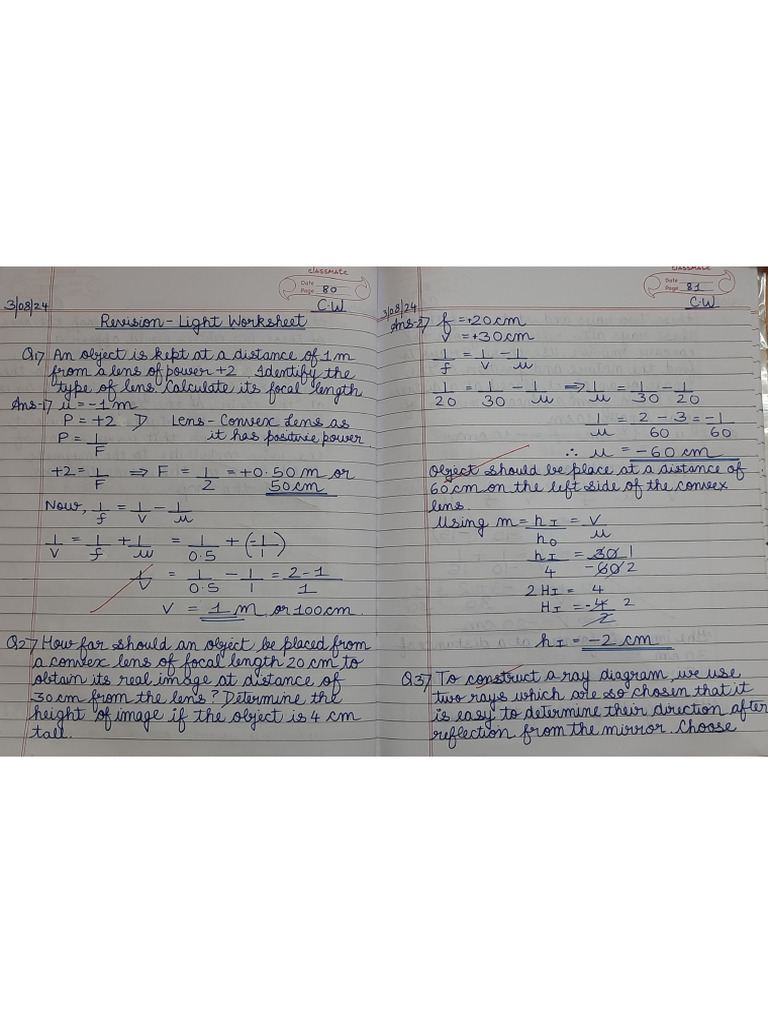 classmate
Date
Page 80
3/08/24
C.W
Revision - Light Worksheet
Q1) An object is kept at a distance of 1m
from a lens of power +2. Identify the
type of lens. Calculate its focal length
Ans-1) u = -1m
P = +2 D Lens - Convex Lens as
it has positive power
P = 1/F
+2 = 1/F ⇒ F = 1/2 = +0.50 m or
50cm
Now, 1/f = 1/v - 1/u
1/v = 1/f + 1/u = 1/0.5 + (-1/1)
1/v = 1/0.5 - 1/1 = 2-1/1
V = 1 m or 100cm.
Q2) How far should an object be placed from
a convex lens of focal length 20 cm to
obtain its real image at distance of
30cm from the lens? Determine the
height of image if the object is 4 cm
tall.
classmate
Date
Page 81
3/08/24
C.W
Ans-2) f = +20cm
V = +30cm
1/f = 1/v - 1/u
1/20 = 1/30 - 1/u ⇒ 1/u = 1/30 - 1/20
1/u = 2 - 3/60 = -1/60
∴ u = -60 cm
Object should be place at a distance of
60cm on the left side of the convex
lens.
Using m = hI/hO = V/u
hI/4 = 30 1/-60 2
2HI = 4
HI = -4/2 2
hI = -2 cm
Q3) To construct a ray diagram, we use
two rays which are so chosen that it
is easy to determine their direction after
reflection from the mirror. Choose